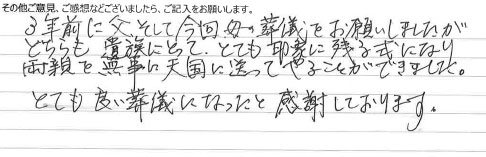 その他ご意見、ご感想などございましたら、ご記入をお願いします。
3年前に父そして今回母の葬儀をお願いしましたが
どちらも貴族にとって、とても印象に残る式になり
両親を無事に天国に送ってやることができました。
とても良い葬儀になったと感謝しております。